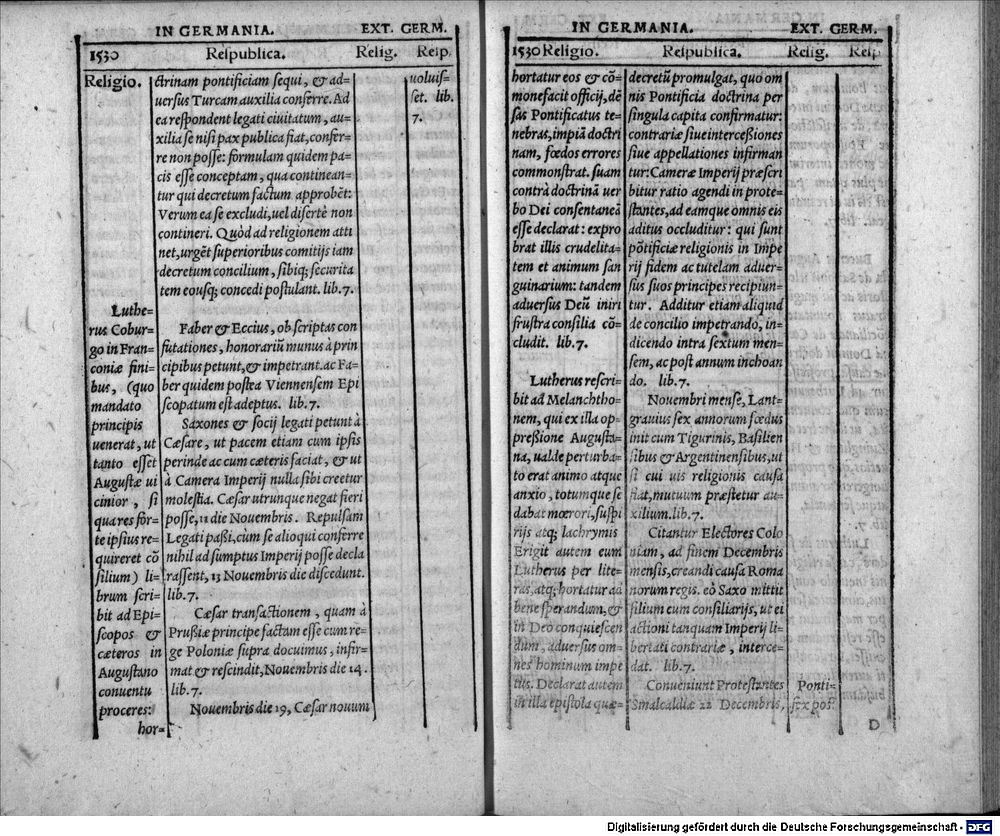 IN GERMANIA. EXT. GERM.
1530 Respublica. Relig. Resp.
Religio.
Luthe-
rus Cobur-
go in Fran-
coniæ fini-
bus, (quo
mandato
principis
uenerat, ut
tanto esset
Augustæ ui
cinior, si
qua res for-
te ipsius re-
quireret cō
silium) li-
brum scri-
bit ad Epi-
scopos &
cæteros in
Augustano
conuentu
proceres:
hor-
ctrinam pontificiam sequi, & ad-
uersus Turcam auxilia conferre. Ad
ea respondent legati ciuitatum, au-
xilia se nisi pax publica fiat, confer-
re non posse: formulam quidem pa-
cis esse conceptam, qua continean-
tur qui decretum factum approbēt:
Verum ea se excludi, uel disertè non
contineri. Quòd ad religionem atti
net, urgēt superioribus comitijs iam
decretum concilium, sibiq; securita
tem eousq; concedi postulant. lib. 7.
Faber & Eccius, ob scriptas con
futationes, honorariū munus à prin
cipibus petunt, & impetrant. ac Fa-
ber quidem postea Viennensem Epi
scopatum est adeptus. lib. 7.
Saxones & socij legati petunt à
Cæsare, ut pacem etiam cum ipsis
perinde ac cum cæteris faciat, & ut
à Camera Imperij nulla sibi creetur
molestia. Cæsar utrunque negat fieri
posse, 11 die Nouembris. Repulsam
Legati passi, cùm se alioqui conferre
nihil ad sumptus Imperij posse decla
rassent, 13 Nouembris die discedunt.
lib. 7.
Cæsar transactionem, quam à
Prussiæ principe factam esse cum re-
ge Poloniæ supra docuimus, infir-
mat & rescindit, Nouembris die 14.
lib. 7.
Nouembris die 19, Cæsar nouum
uoluis-
set. lib.
7.
IN GERMANIA. EXT. GERM.
1530 Religio. Respublica. Relig. Resp
hortatur eos & cō-
monefacit officij, dē
sas Pontificatus te-
nebras, impiā doctri
nam, fœdos errores
commonstrat. suam
contrà doctrinā uer
bo Dei consentaneā
esse declarat: expro
brat illis crudelita-
tem et animum san
guinarium: tandem
aduersus Deū iniri
frustra consilia cō-
cludit. lib. 7.
Lutherus rescri-
bit ad Melanchtho-
nem, qui ex illa op-
pressione Augusta-
na, ualde perturba-
to erat animo atque
anxio, totumque se
dabat mœrori, suspi
rijs atq; lachrymis
Erigit autem eum
Lutherus per lite-
ras, atq; hortatur ad
bene sperandum, &
in Deo conquiescen
dum, aduersus om-
nes hominum impe
tus. Declarat autem
in illa epistola quæ-
decretū promulgat, quo om
nis Pontificia doctrina per
singula capita confirmatur:
contrariæ siue intercessiones
siue appellationes infirman
tur: Cameræ Imperij præscri
bitur ratio agendi in prote-
stantes, ad eamque omnis eis
aditus occluditur: qui sunt
pōtificiæ religionis in Impe
rij fidem ac tutelam aduer-
sus suos principes recipiun-
tur. Additur etiam aliquid
de concilio impetrando, in-
dicendo intra sextum men-
sem, ac post annum inchoan
do. lib. 7.
Nouembri mense, Lant-
grauius sex annorum fœdus
init cum Tigurinis, Basilien
sibus & Argentinensibus, ut
si cui uis religionis causa
fiat, mutuum præstetur au-
xilium. lib. 7.
Citantur Electores Colo
niam, ad finem Decembris
mensis, creandi causa Roma
norum regis. eò Saxo mittit
filium cum consiliarijs, ut ei
actioni tanquam Imperij li-
bertati contrariæ, interce-
dat. lib. 7.
Conueniunt Protestantes
Smalcaldiæ 22 Decembris,
Ponti-
fex pos
D
Digitalisierung gefördert durch die Deutsche Forschungsgemeinschaft - DFG